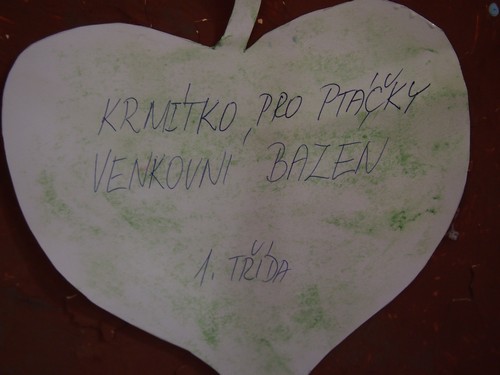 KRMÍTKO PRO PTÁČKY
VENKOVNÍ BAZEN
1. TŘÍDA